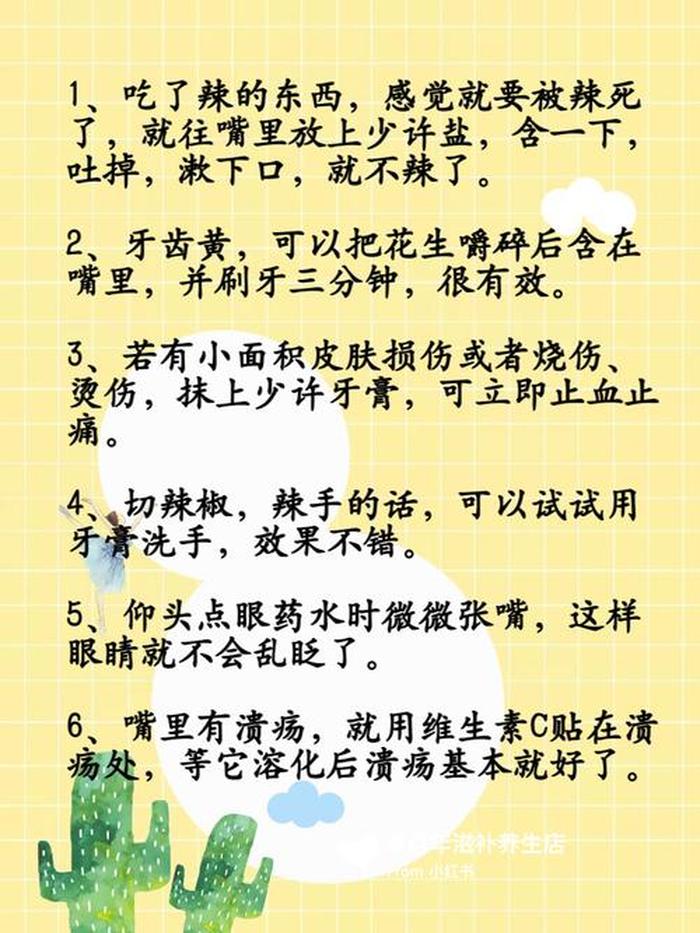 1、吃了辣的东西，感觉就要被辣死
了，就往嘴里放上少许盐，含一下，
吐掉，漱下口，就不辣了。
2、牙齿黄，可以把花生嚼碎后含在
嘴里，并刷牙三分钟，很有效。
3、若有小面积皮肤损伤或者烧伤、
烫伤，抹上少许牙膏，可立即止血止
痛。
4、切辣椒，辣手的话，可以试试用
牙膏洗手，效果不错。
5、仰头点眼药水时微微张嘴，这样
眼睛就不会乱眨了。
6、嘴里有溃疡，就用维生素C贴在溃
疡处，等它溶化后溃疡基本就好了。
年滋补养生店
From 小红书